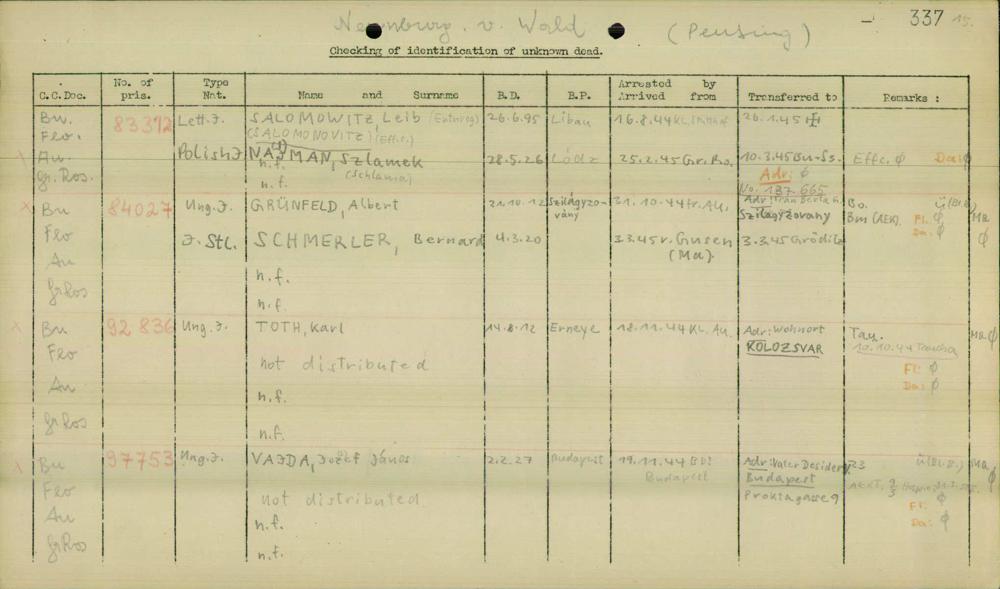 Neunburg. v. Wald (Pensing) — 337 15.
Checking of identification of unknown dead.
C.C.Doc. No. of pris. Type Nat. Name and Surname B.D. B.P. Arrested by Arrived from Transferred to Remarks :
Bu. 83372 Lett.J. SALOMOWITZ Leib 26.6.95 Libau 16.8.44 KL. 26.1.45
Flo. (SALOMONOVITZ) (Eff.r.)
Au. Polish J NAJMAN, Szlamek 28.5.26 Lódz 25.2.45 Gr.Ro. 10.3.45 Bu-Ss. Effc. ϕ Da: ϕ
n.f. (Schlama) Adr: ϕ
Gr.Ros. n.f. No. 137.665
x Bu 84027 Ung.J. GRÜNFELD, Albert 21.10.12 Szilágyzovány 31.10.44 Szilágyzovany Bo. ü(Bl.B.) Ma ϕ
Bm (AEK). Fl. ϕ
Flo J. Stl. SCHMERLER, Bernard 4.3.20 3.3.45 v. Gusen (Ma). 3.3.45 Gröditz Da: ϕ
Au n.f.
GrRos n.f.
x Bu 92 836 Ung.J. TOTH, Karl 14.8.12 Erneye 18.11.44 KL. Au. Adr: Wohnort KOLOZSVAR Tau. Ma ϕ
10.10.44 Taucha
Flo not distributed Fl: ϕ
Au n.f. Da: ϕ
GrRos n.f.
x Bu 97753 Ung.J. VAJDA, József János 2.2.27 Budapest 19.11.44 Budapest Adr: Vater Desider Budapest 23 ü(Bl.B.) Ma ϕ
Flo not distributed Proktagasse 9 Fl: ϕ
Au n.f. Da: ϕ
GrRos n.f.